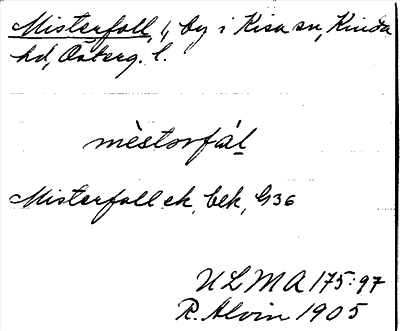 Misterfall, by i Kisa sn, Kinda
hd, Österg. l.
mèstorfál
Misterfall ek, bek, G36
ULMA 175:97
R. Alvin 1905